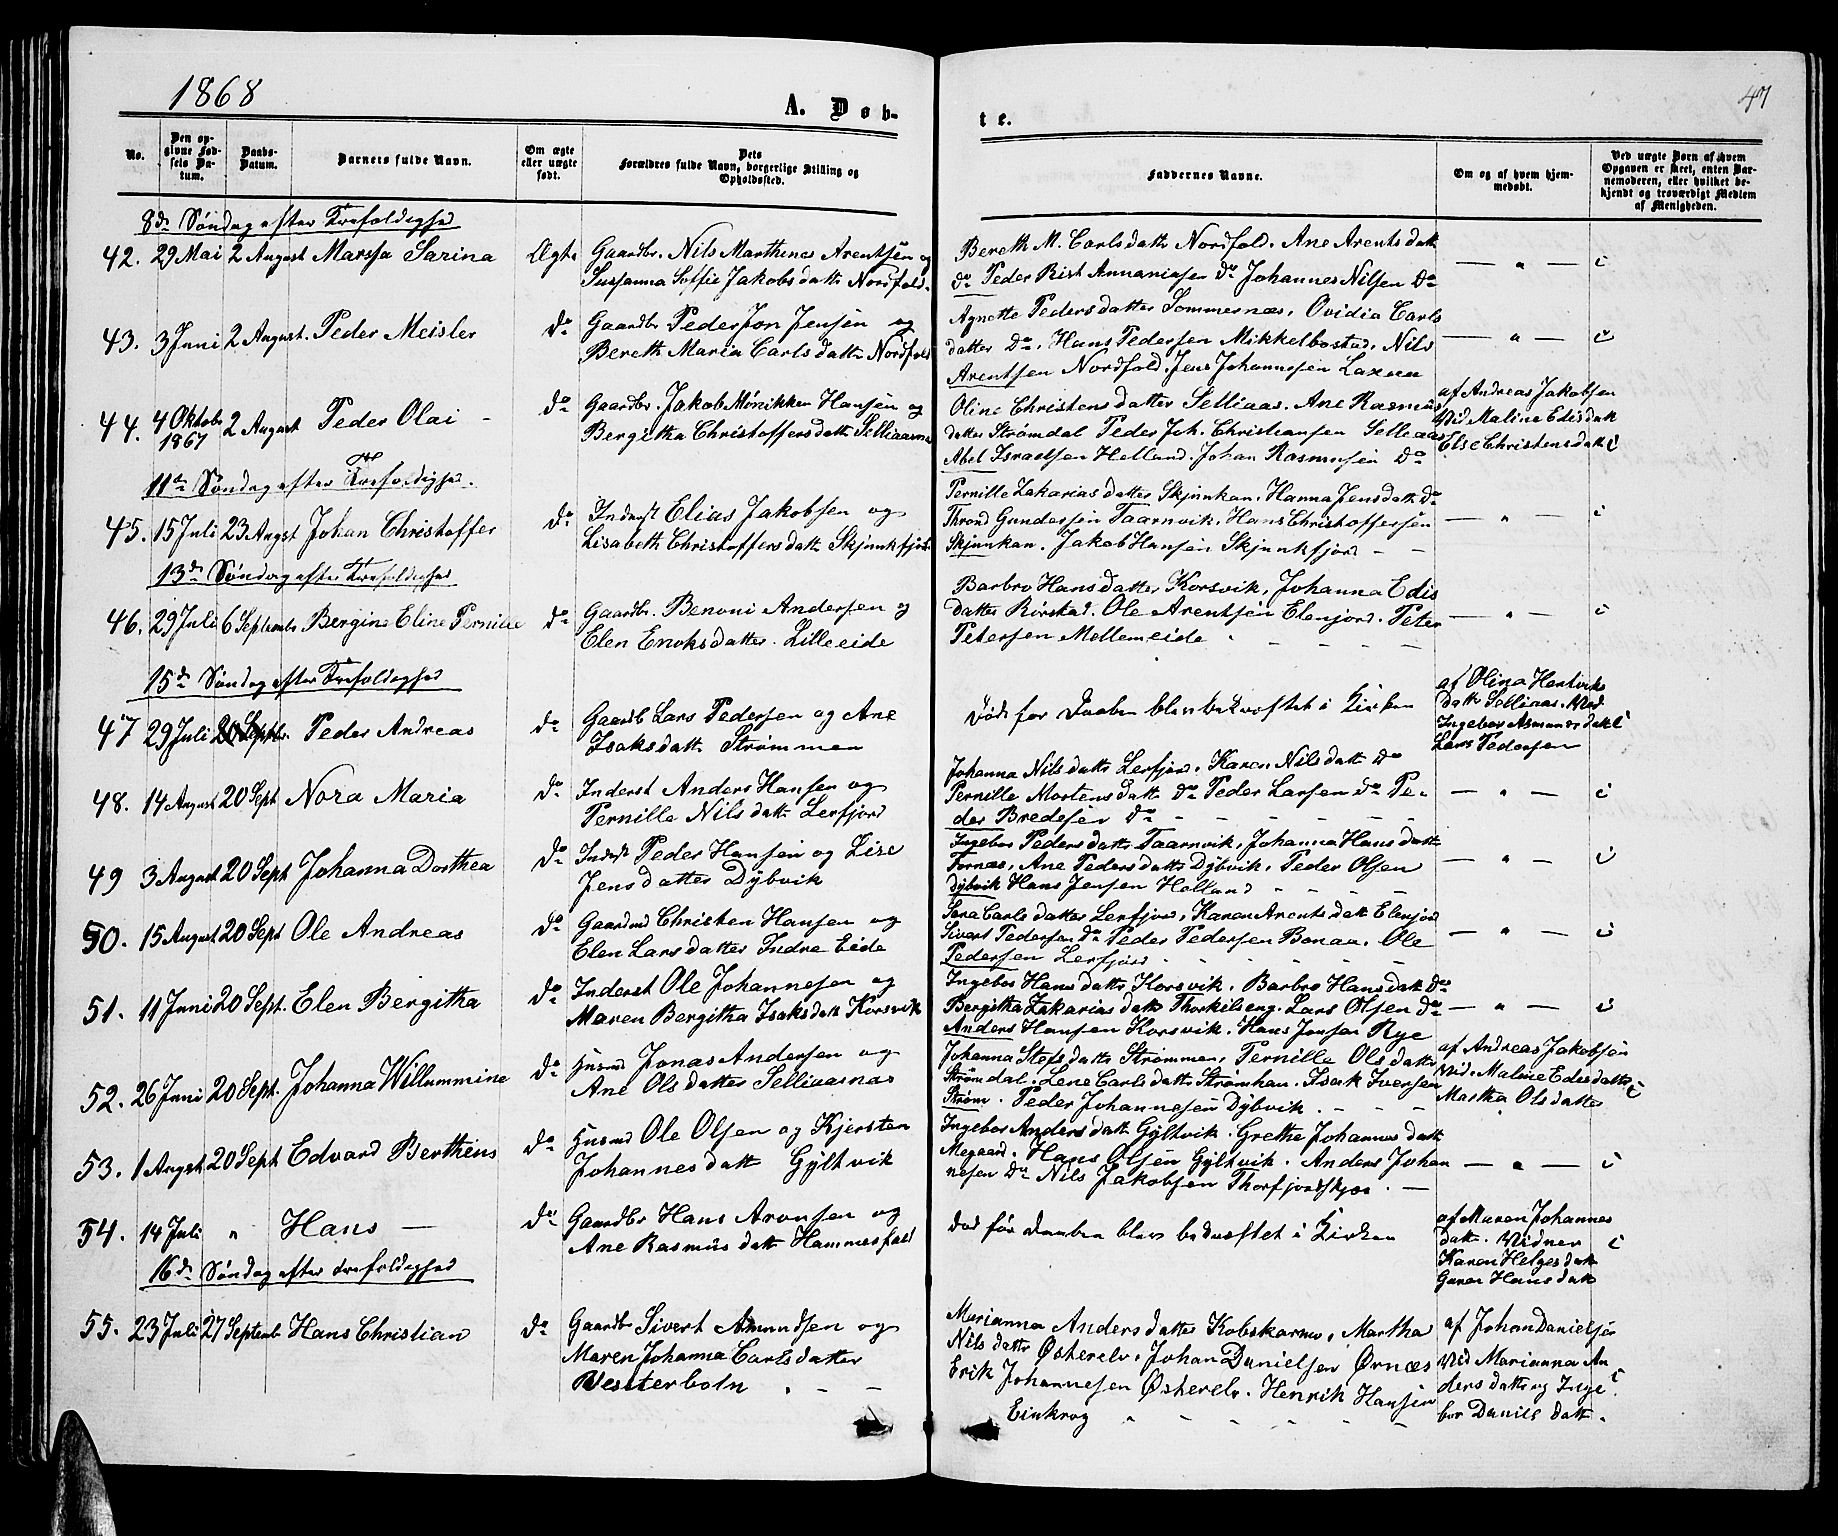 1868
47
A. Døb-
te.
No.
Den opgivne Fødsels Datum.
Daabs-Datum.
Barnets fulde Navn.
Om ægte eller uægte født.
Dets Forældres fulde Navn, borgerlige Stilling og Opholdssted.
Faddernes Navne.
Om og af hvem hjemmedøbt.
Ved uægte Børn af hvem Opgaven er skeet, enten Barnemoderen, eller hvilket bekjendt og troværdigt Medlem af Menigheden.
8de Søndag efter Trefoldighed
42. 29 Mai 2 August Marssa Sarina Ægte Gaardbr. Nils Marthenes Arentsen og
Sussanna Soffie Jakobsdatt Nordfold.
Bereth M. Carlsdatt Nordfold. Ane Arentsdatt
do Peder Rist Annaniasen do Johannes Nilsen Do
— " —
43. 3 Juni 2 August. Peder Meisler do Gaardbr Peder Jon Jensen og
Bereth Maria Carlsdatt Nordfold
Agnette Pedersdatter Sommernæs, Ovidia Carls
datter Do, Hans Pedersen Mikkelbostad, Nils
Arentsen Nordfold. Jens Johannesen Laxaa
— " —
44. 4 Oktob 1867 2 August Peder Olai - do Gaardbr. Jakob Mønikken Hansen og
Bergitha Christoffersdatt Selliaasnes
Oline Christensdatter Selliaas. Ane Rasmus
datter Strømdal Peder Joh. Christiansen Selleaas
Abel Israelsen Helland. Johan Rasmusen Do
af Andreas Jakobsen
Vid Maline Edisdatt
Else Christensdatt
11te Søndag efter Trefoldighed.
45. 15 Juli 23 Augst Johan Christoffer do Inderst Elias Jakobsen og
Lisabeth Christoffersdatt Skjunkfjord
Pernille Zakariasdatter Skjunkan. Hanna Jensdatt Do
Thrond Gundersen Taarnvik. Hans Christoffersen
Skjunkan. Jakob Hansen Skjunkfjord - -
— " —
13de Søndag efter Trefoldighed
46. 29 Juli 6 Septemb Bergine Eline Pernille do Gaardbr. Benoni Andersen og
Elen Enoksdatter. Lilleeide
Barbro Hansdatter Korsvik, Johanna Edis
datter Rørstad. Ole Arentsen Elenjord. Peter
Petersen Mellemeide
— " —
15de Søndag efter Trefoldighed
47 29 Juli 20 Septbr. Peder Andreas do Gaardb Lars Pedersen og Ane
Isaksdatt Strømmen
Døde før Daaben blev bekræftet i Kirken
af Olina Hentriks
datt Selliaas. Vid
Ingebor Asmundsdatt
Lars Pedersen
48. 14 August 20 Sept Nora Maria do Inderst Anders Hansen og
Pernille Nilsdatt Lerfjord
Johanna Nilsdatt Lerfjord. Karen Nilsdatt Do
Pernille Mortensdatt do Peder Larsen do Pe-
der Bredesen Do
— " —
49 3 August 20 Sept Johanna Dorthea do Inderst Peder Hansen og Lise
Jensdatter Dÿbvik
Ingebor Pedersdatt Taarnvik, Johanna Hansdatt
Fornæs, Ane Pedersdatt Dÿbvik, Peder Olsen
Dÿbvik Hans Jensen Holland
— " —
50. 15 August 20 Sept Ole Andreas do Gaardmd Christen Hansen og
Elen Larsdatter Indre Eide
Sara Carlsdatter Lerfjord, Karen Arentsdatt Elenjord
Sivert Pedersen do Peder Pedersen Bonaa. Ole
Pedersen Lerfjord
— " —
51. 11 Juni 20 Sept. Elen Bergitha do Inderst Ole Johannesen og
Maren Bergitha Isaksdatt Korsvik
Ingebor Hansdatt Korsvik. Barbro Hansdatt Do
Bergitha Zakariasdatt Thorkilseng. Lars Olsen do
Anders Hansen Korsvik. Hans Jensen Rye
— " —
52. 26 Juni 20 Sept. Johanna Willummine do Husmd Jonas Andersen og
Ane Olsdatter Selliaasnæs
Johanna Stefsdatt Strømmen, Pernille Olsdatt
Strømdal. Lene Carlsdatt Strømhan. Isak Iversen
Strøm. Peder Johannesen Dÿbvik
af Andreas Jakobsen
Vid. Maline Edisdatter
Martha Olsdatter
53. 1 Augst 20 Sept Edvard Bertheus do Husmd Ole Olsen og Kjersten
Johannesdatt Gÿltvik
Ingebor Andersdatt Gÿltvik. Grethe Johannesdatt
Megaard. Hans Olsen Gÿltvik. Anders Johan
nesen Do Nils Jakobsen Thorfjordskjær. —
— " —
54. 14 Juli " Hans — do Gaardbr Hans Aronsen og
Ane Rasmusdatt Hammesfald
død før Daaben blev bekræftet i Kirken
af Maren Johannes
datt. Vidner
Karen Helgesdatt
Guren Hansdatt
16de Søndag efter trefoldighed
55. 23 Juli 27 Septemb Hans Christian do Gaardbr Sivert Amundsen og
Maren Johanna Carlsdatter
Vesterbotn
Marianna Andersdatter Kobskarnes, Martha
Nilsdatt Østerelv. Johan Danielsen Ørnæs
Erik Johannesen Østerelv. Henrik Hansen
Einkrog
af Johan Danielsen
Vid Marianna An
dersdatt og Inge
bor Danielsdatt.